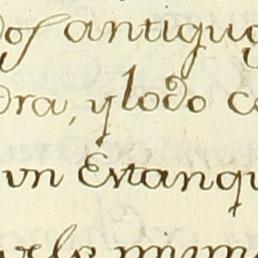 dos antiguo
dra, y lodo c
vn Estanqu